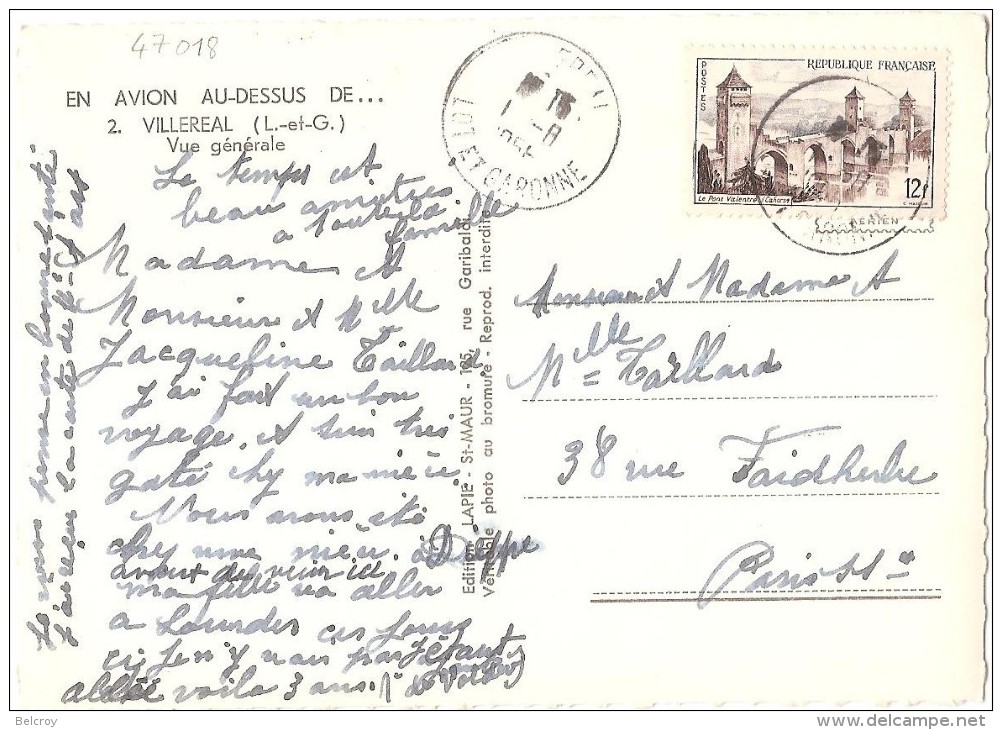 47018
EN AVION AU-DESSUS DE...
2. VILLEREAL (L.-et-G.)
Vue générale
LOT ET GARONNE
POSTES
REPUBLIQUE FRANÇAISE
Le Pont Valentré Cahors
12f
AERIEN
Le temps est
beau amitiés
a toute la
famille
Madame et
Monsieur et Melle
Jacqueline Taillard
J'ai fait un bon
voyage et suis très
gaté chez ma nièce
Nous avons été
chez une nièce à Dieppe
avant de venir ici
ma fille va aller
a Lourdes ces jours
ci je n'y vais pas
allée voila 3 ans
Edition LAPIE - St-MAUR - 125, rue Garibaldi
Véritable photo au bromure - Reprod. interdite
Monsieur et Madame et
Melle Taillard
38 rue Faidherbe
Paris 11e
Belcroy
delcampe.net